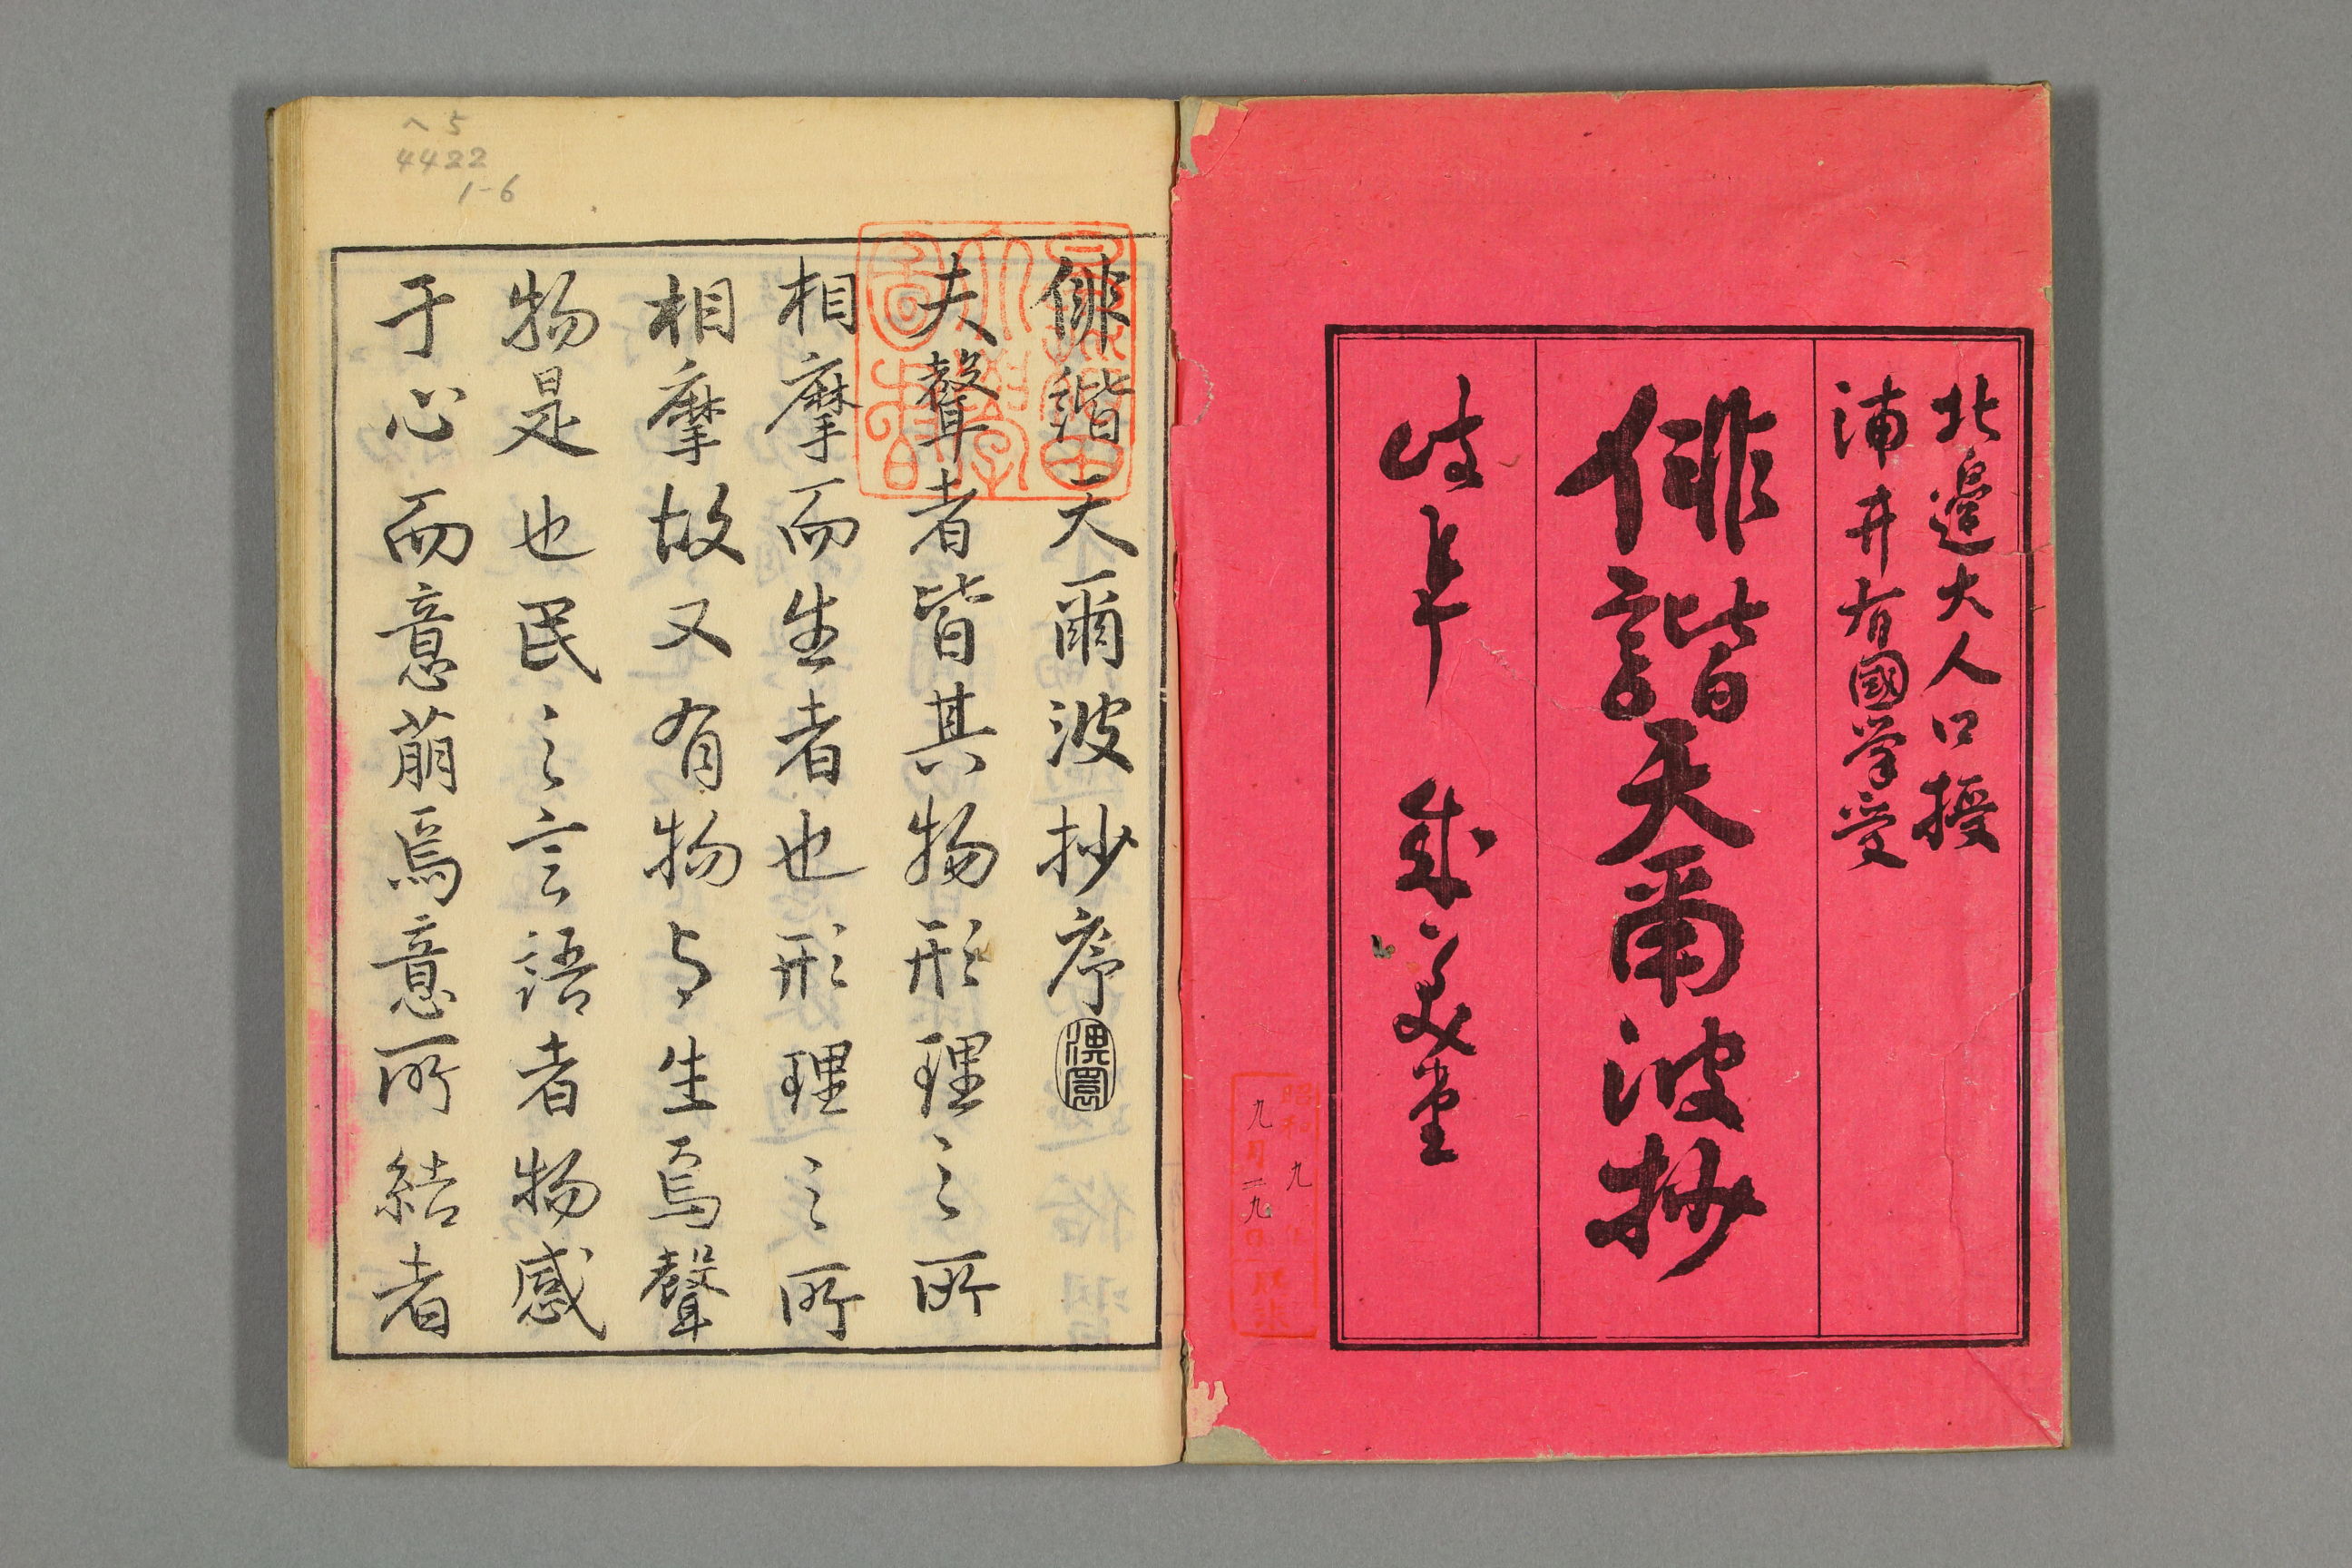 北邉大人口授
浦井有國学受
俳諧天爾波抄
岐阜 成美堂
昭和九年
九月二九日
ヘ5
4422
1-6
早稲田大学図書
俳諧天爾波抄序
夫聲者皆其物形理之所
相摩而生者也形理之所
相摩故又有物与生焉聲
物是也民之言語者物感
于心而意萠焉意所結者